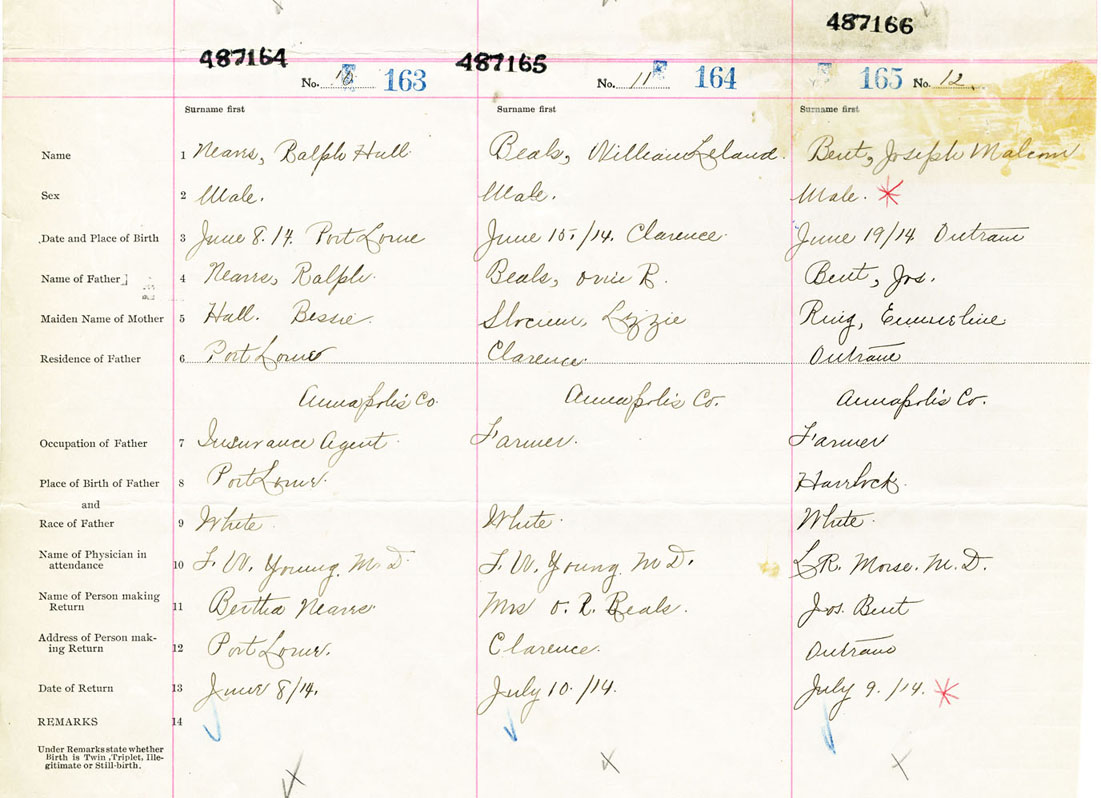 487164 487165 487166
No. 10 163 No. 11 164 165 No. 12
Surname first Surname first Surname first
Name 1 Nearrs, Ralph Hall Beals, William Leland. Bent, Joseph Malcom
Sex 2 Male. Male. Male.
Date and Place of Birth 3 June 8.14. Port Lorne June 15,/14. Clarence. June 19/14 Outram
Name of Father 4 Nearrs, Ralph. Beals, R. Bent, Jos.
Maiden Name of Mother 5 Hall. Bessie. Slocum, Lizzie Ring, Emmeline
Residence of Father 6 Port Lorne Clarence Outram
Annapolis Co. Annapolis Co. Annapolis Co.
Occupation of Father 7 Insurance Agent. Farmer. Farmer
Place of Birth of Father 8 Port Lorne. Havelock.
and
Race of Father 9 White. White. White.
Name of Physician in
attendance 10 F. W. Young. M.D. F. W. Young. M.D. L.R. Morse. M.D.
Name of Person making
Return 11 Bertha Nearrs. Mrs O. R. Beals. Jos. Bent
Address of Person mak-
ing Return 12 Port Lorne. Clarence. Outram
Date of Return 13 June 8/14. July 10./14. July 9./14.
REMARKS 14
Under Remarks state whether
Birth is Twin, Triplet, Ille-
gitimate or Still-birth.